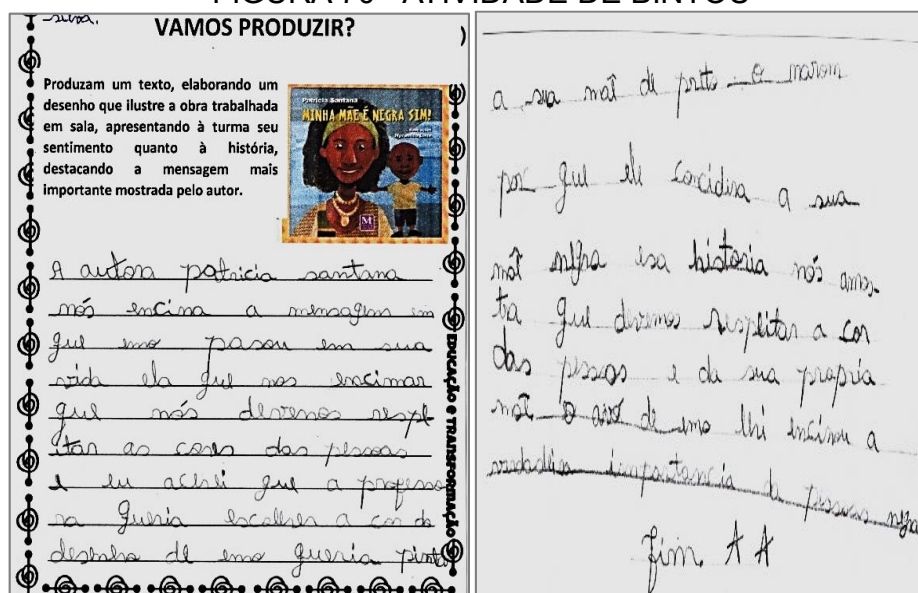 FIGURA 70 - ATIVIDADE DE BINTOU
silva.
VAMOS PRODUZIR?
Produzam um texto, elaborando um
desenho que ilustre a obra trabalhada
em sala, apresentando à turma seu
sentimento quanto à história,
destacando a mensagem mais
importante mostrada pelo autor.
Patrícia Santana
MINHA MÃE É NEGRA SIM!
EDUCAÇÃO e TRANSFORMAÇÃO
A autora patricia santana
nós encina a mensagem em
que eno pasou em sua
vida ela que nos encimar
que nós devemos respe
itar as cores das pessoas
e eu achei que a professo
ra queria escolher a cor do
desenho de eno queria pinta
a sua maî de preto e marom
por que ele concidera a sua
maî negra esa historia nós amos-
tra que devemos respeitar a cor
das pessoas e da sua propria
maî o avô de eno lhi encinou a
verdadeira importancia de pessoas negra
fim AA